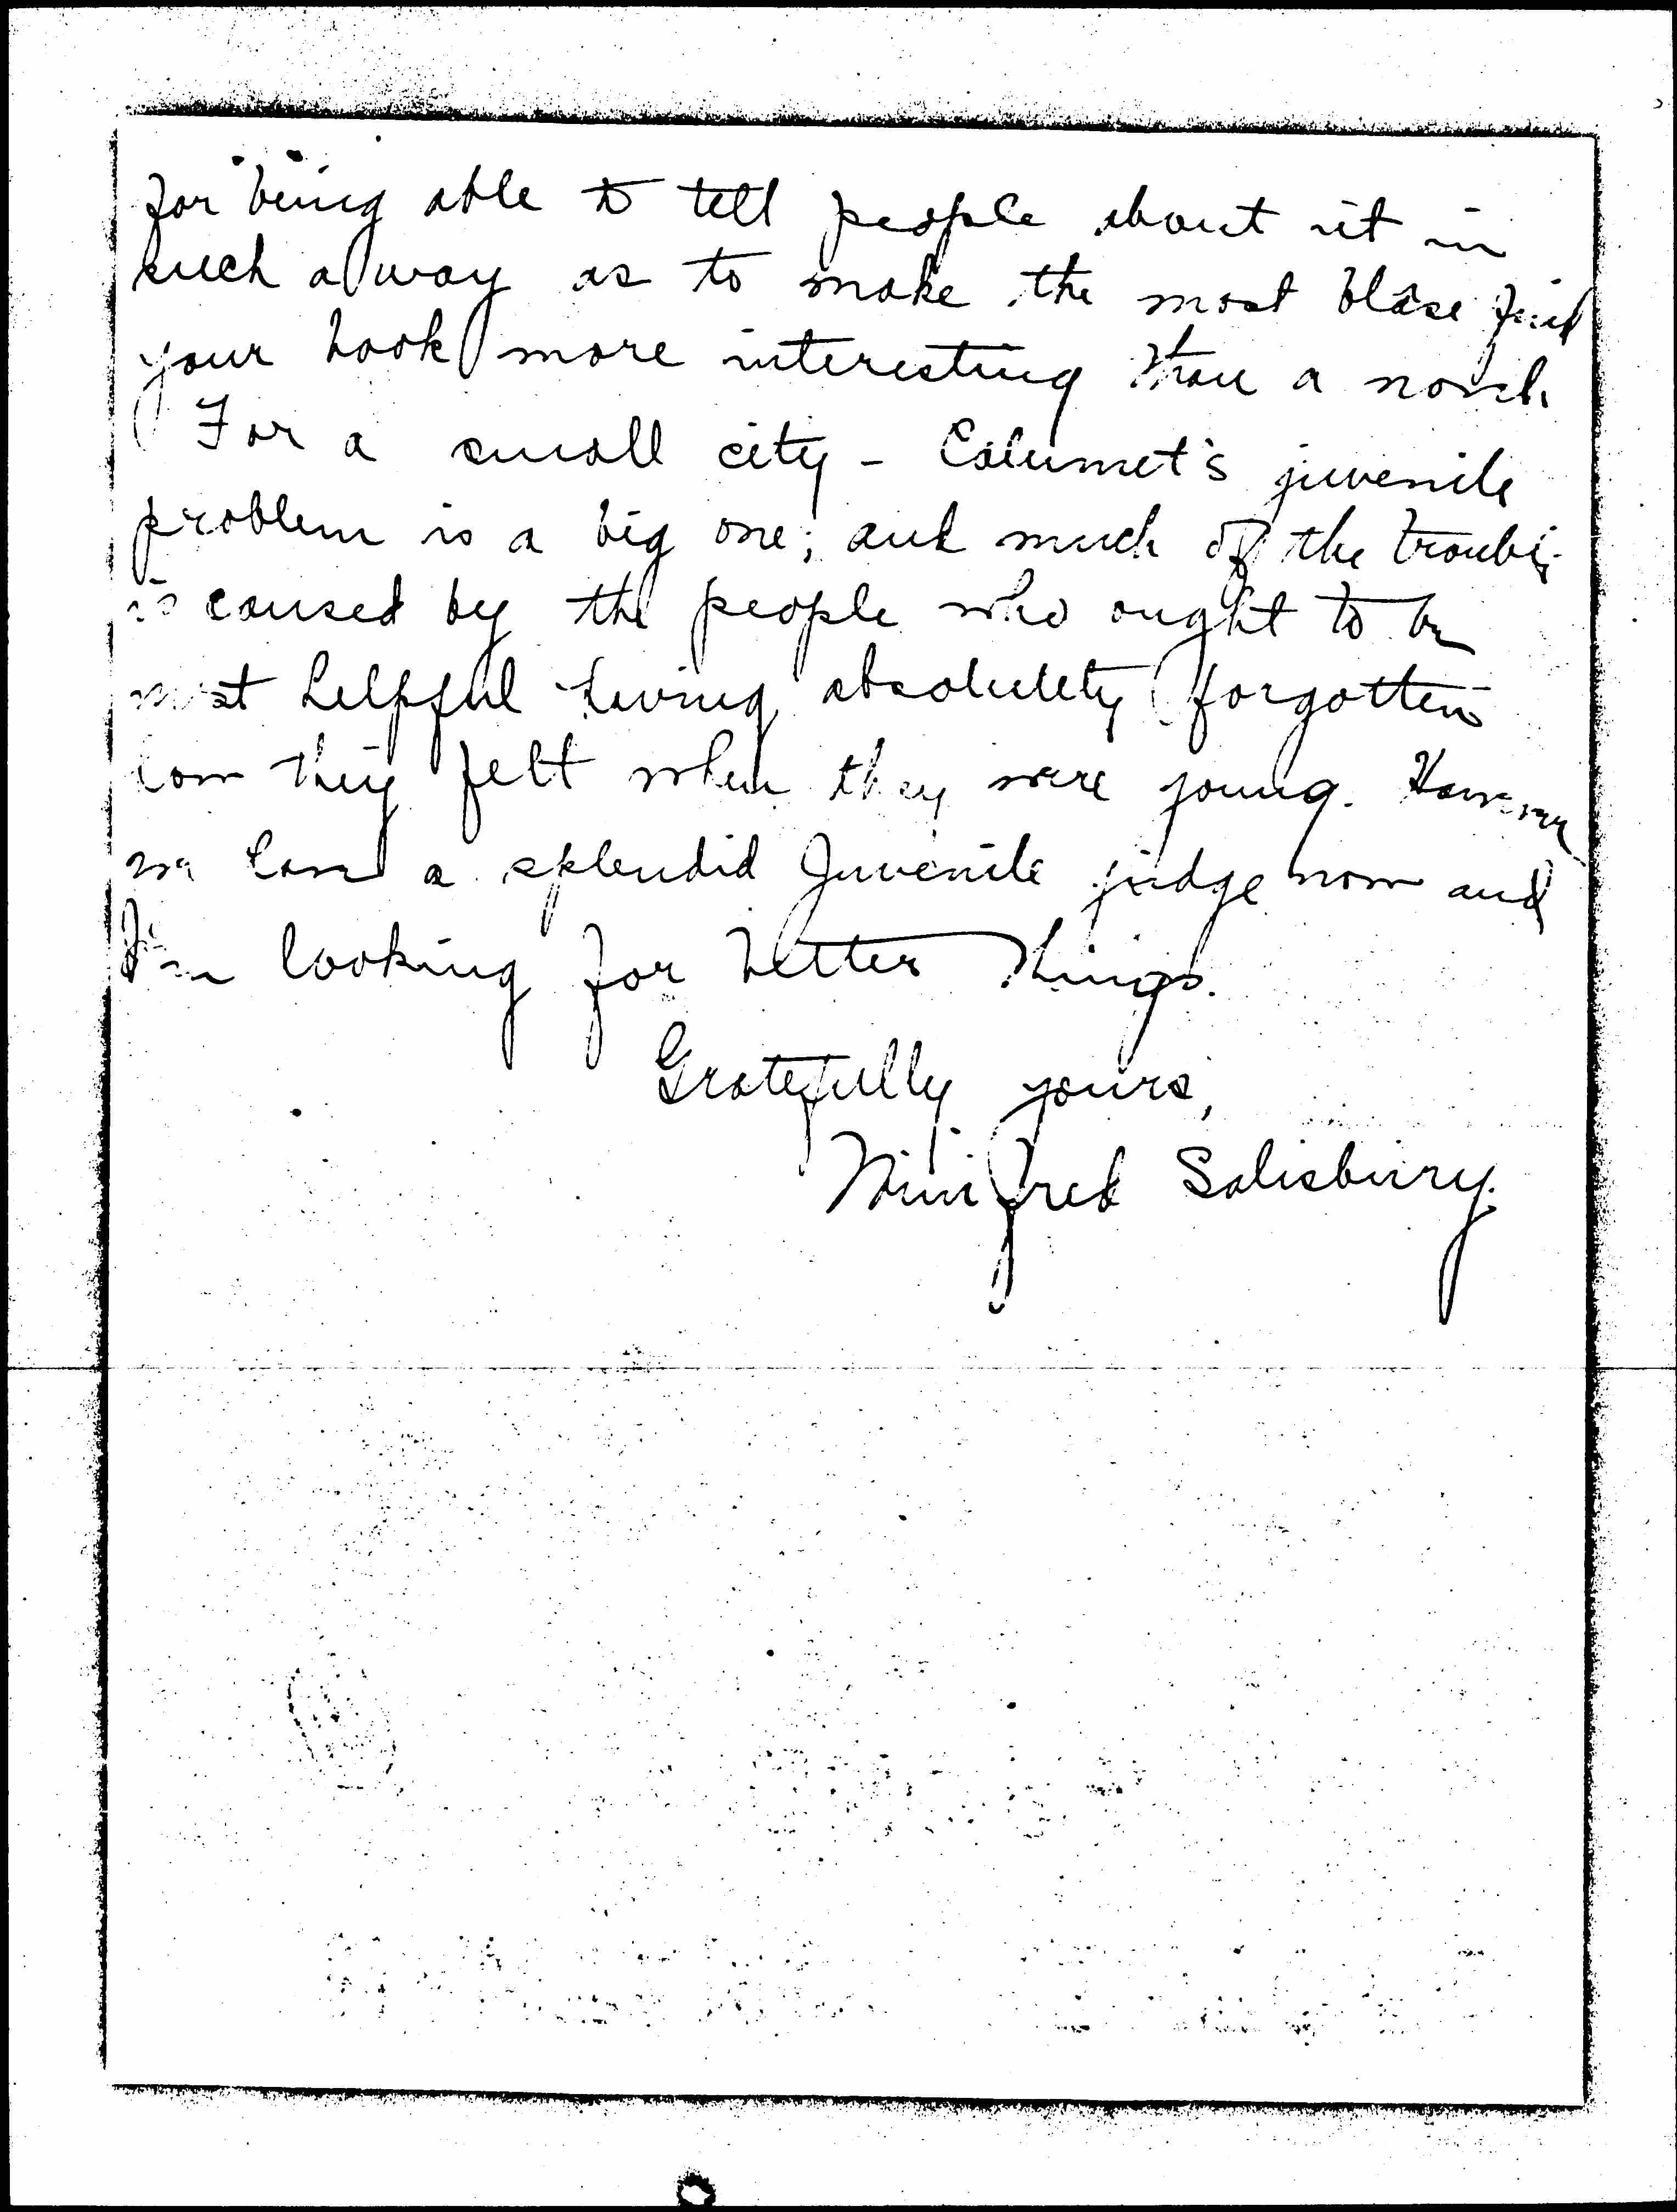 for being able to tell people about it in
such a way as to make the most blâse find
your book more interesting than a novel.
For a small city - Calumet's juvenile
problem is a big one; and much of the trouble
is caused by the people who ought to be
most helpful having absolutely forgotten
how they felt when they were young. However
we have a splendid Juvenile judge now and
I'm looking for better things.
Gratefully yours,
Winifred Salisbury.